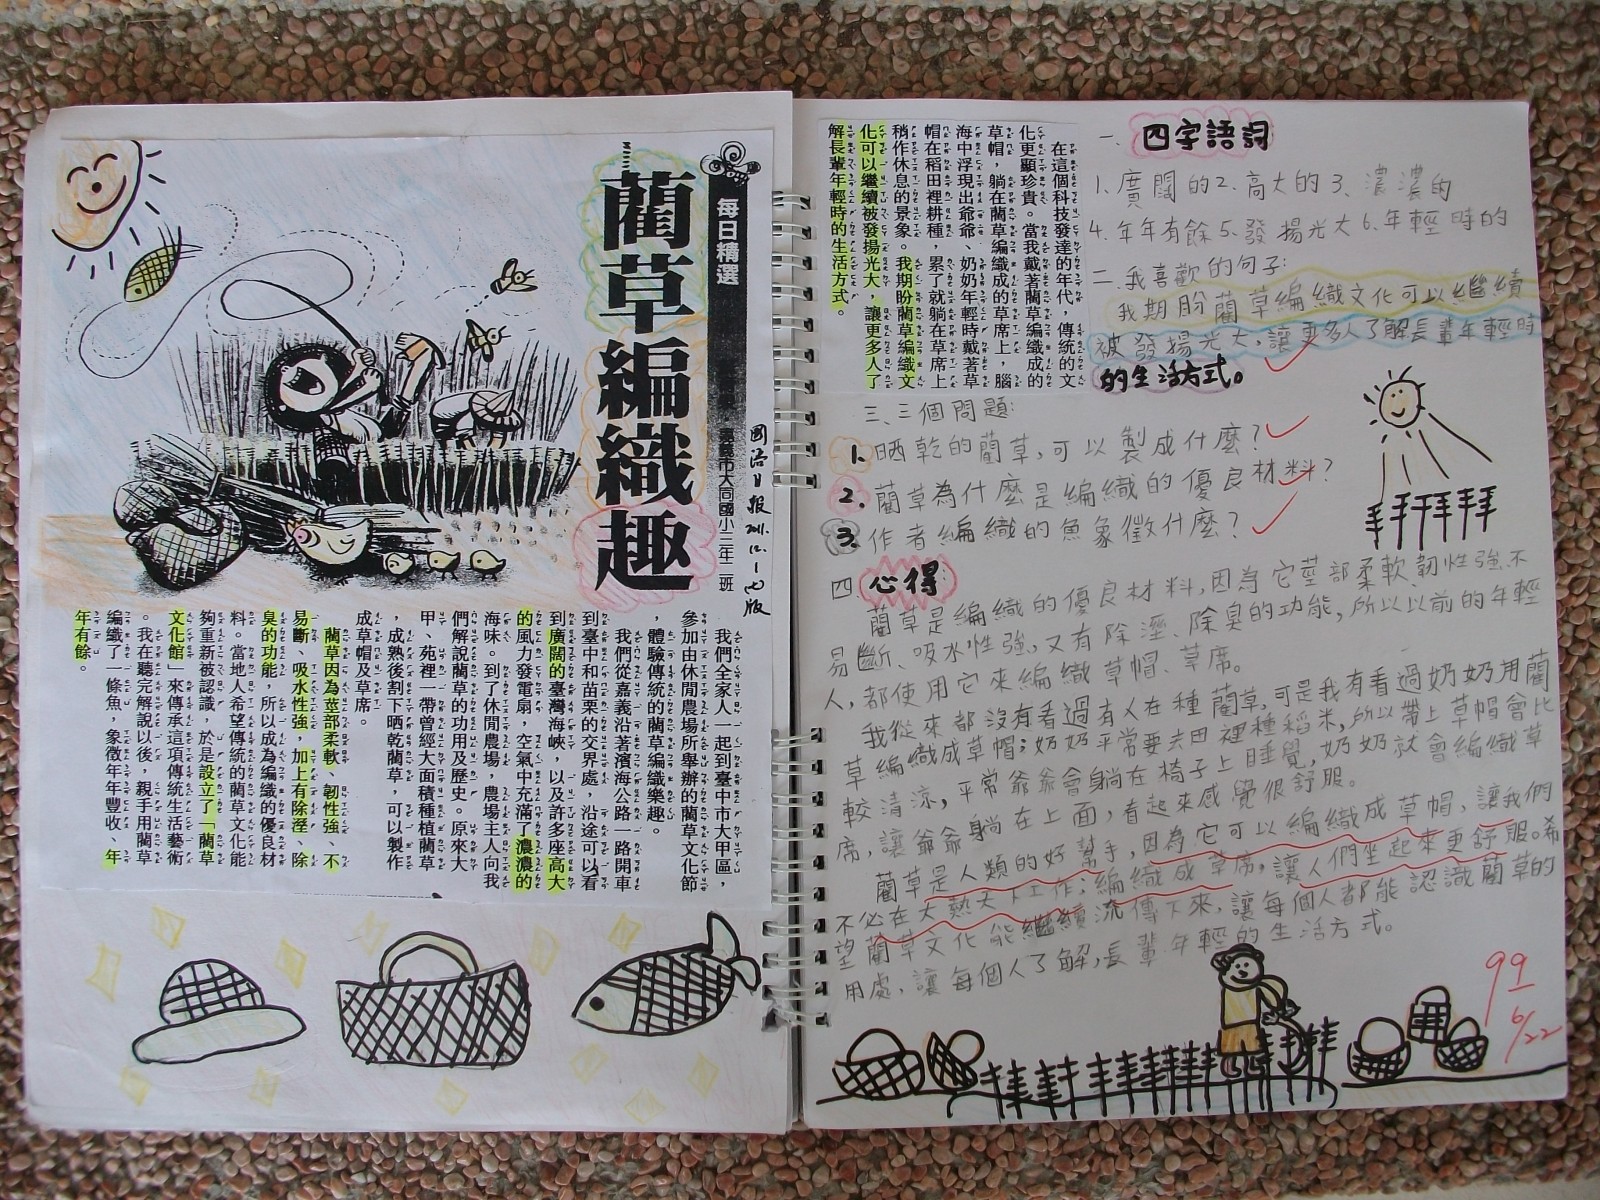 每日精選
藺草編織趣
嘉義市大同國小三年二班
國語日報 2011.12.1 七版
我們全家人一起到臺中市大甲區，
參加由休閒農場所舉辦的藺草文化節
，體驗傳統的藺草編織樂趣。
我們從嘉義沿著濱海公路一路開車
到臺中和苗栗的交界處，沿途可以看
到廣闊的臺灣海峽，以及許多座高大
的風力發電扇，空氣中充滿了濃濃的
海味。到了休閒農場，農場主人向我
們解說藺草的功用及歷史。原來大
甲、苑裡一帶曾經大面積種植藺草
，成熟後割下晒乾藺草，可以製作
成草帽及草席。
藺草因為莖部柔軟、韌性強、不
易斷、吸水性強，加上有除溼、除
臭的功能，所以成為編織的優良材
料。當地人希望傳統的藺草文化能
夠重新被認識，於是設立了「藺草
文化館」來傳承這項傳統生活藝術
。我在聽完解說以後，親手用藺草
編織了一條魚，象徵年年豐收、年
年有餘。
在這個科技發達的年代，傳統的文
化更顯珍貴。當我戴著藺草編織成的
草帽，躺在藺草編織成的草席上，腦
海中浮現出爺爺、奶奶年輕時戴著草
帽在稻田裡耕種，累了就躺在草席上
稍作休息的景象。我期盼藺草編織文
化可以繼續被發揚光大，讓更多人了
解長輩年輕時的生活方式。
一、四字語詞
1、廣闊的2、高大的3、濃濃的
4、年年有餘5、發揚光大6、年輕時的
二、我喜歡的句子：
我期盼藺草編織文化可以繼續
被發揚光大，讓更多人了解長輩年輕時
的生活方式。
三、三個問題：
1、晒乾的藺草，可以製成什麼？
2、藺草為什麼是編織的優良材料？
3、作者編織的魚象徵什麼？
四、心得
藺草是編織的優良材料，因為它莖部柔軟、韌性強、不
易斷、吸水性強，又有除溼、除臭的功能，所以以前的年輕
人，都使用它來編織草帽、草席。
我從來都沒有看過有人在種藺草，可是我有看過奶奶用藺
草編織成草帽；奶奶平常要去田裡種稻米，所以帶上草帽會比
較清涼，平常爺爺會躺在椅子上睡覺，奶奶就會編織草
席，讓爺爺躺在上面，看起來感覺很舒服。
藺草是人類的好幫手，因為它可以編織成草帽，讓我們
不必在大熱天下工作；編織成草席，讓人們坐起來更舒服。希
望藺草文化能繼續流傳下來，讓每個人都能認識藺草的
用處，讓每個人了解，長輩年輕的生活方式。
99
6/22